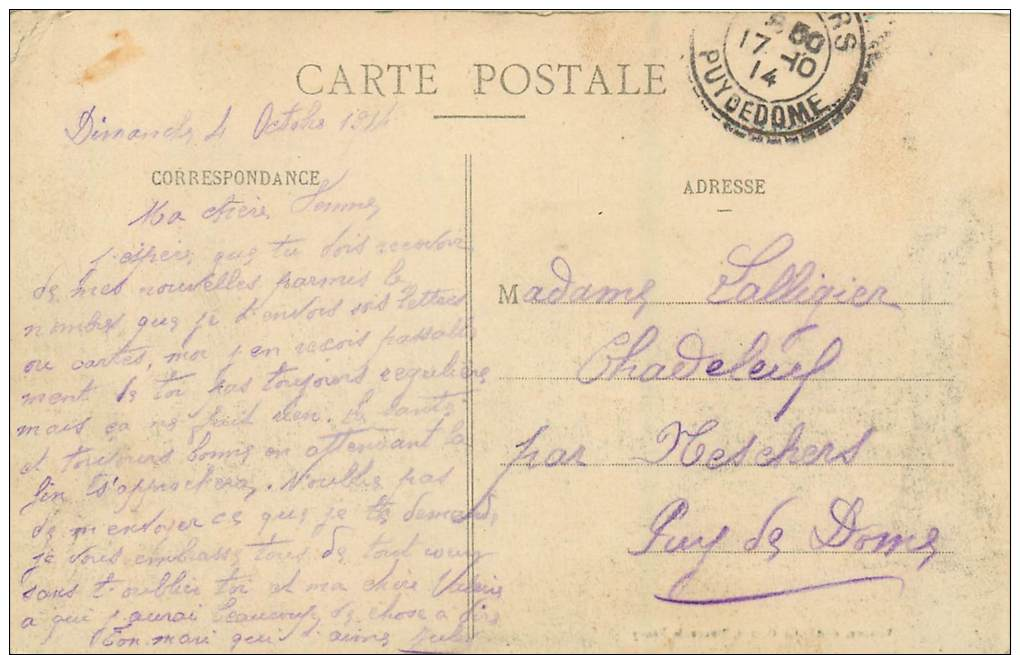 CARTE POSTALE
8 50
17 - 10
14
PUY DE DOME
Dimanche 4 Octobre 1914
CORRESPONDANCE
ADRESSE
Ma chère femme,
J'espère que tu dois recevoir
de mes nouvelles parmis le
nombre que je t'envois sois lettres
ou cartes, moi j'en recois passable
ment de toi pas toujours regulière
mais ça ne fait rien. La santé
et toujours bonne en attendant la
fin s'approchera. N'oublie pas
de m'envoyer ce que je te demande
je vous embrasse tous de tout coeur
sans t'oublier toi et ma chère
a qui j'aurai beaucoup de chose a dire
Ton mari qui t'aime Jules
Madame Salligier
Chadeleuf
par Neschers
Puy de Dome